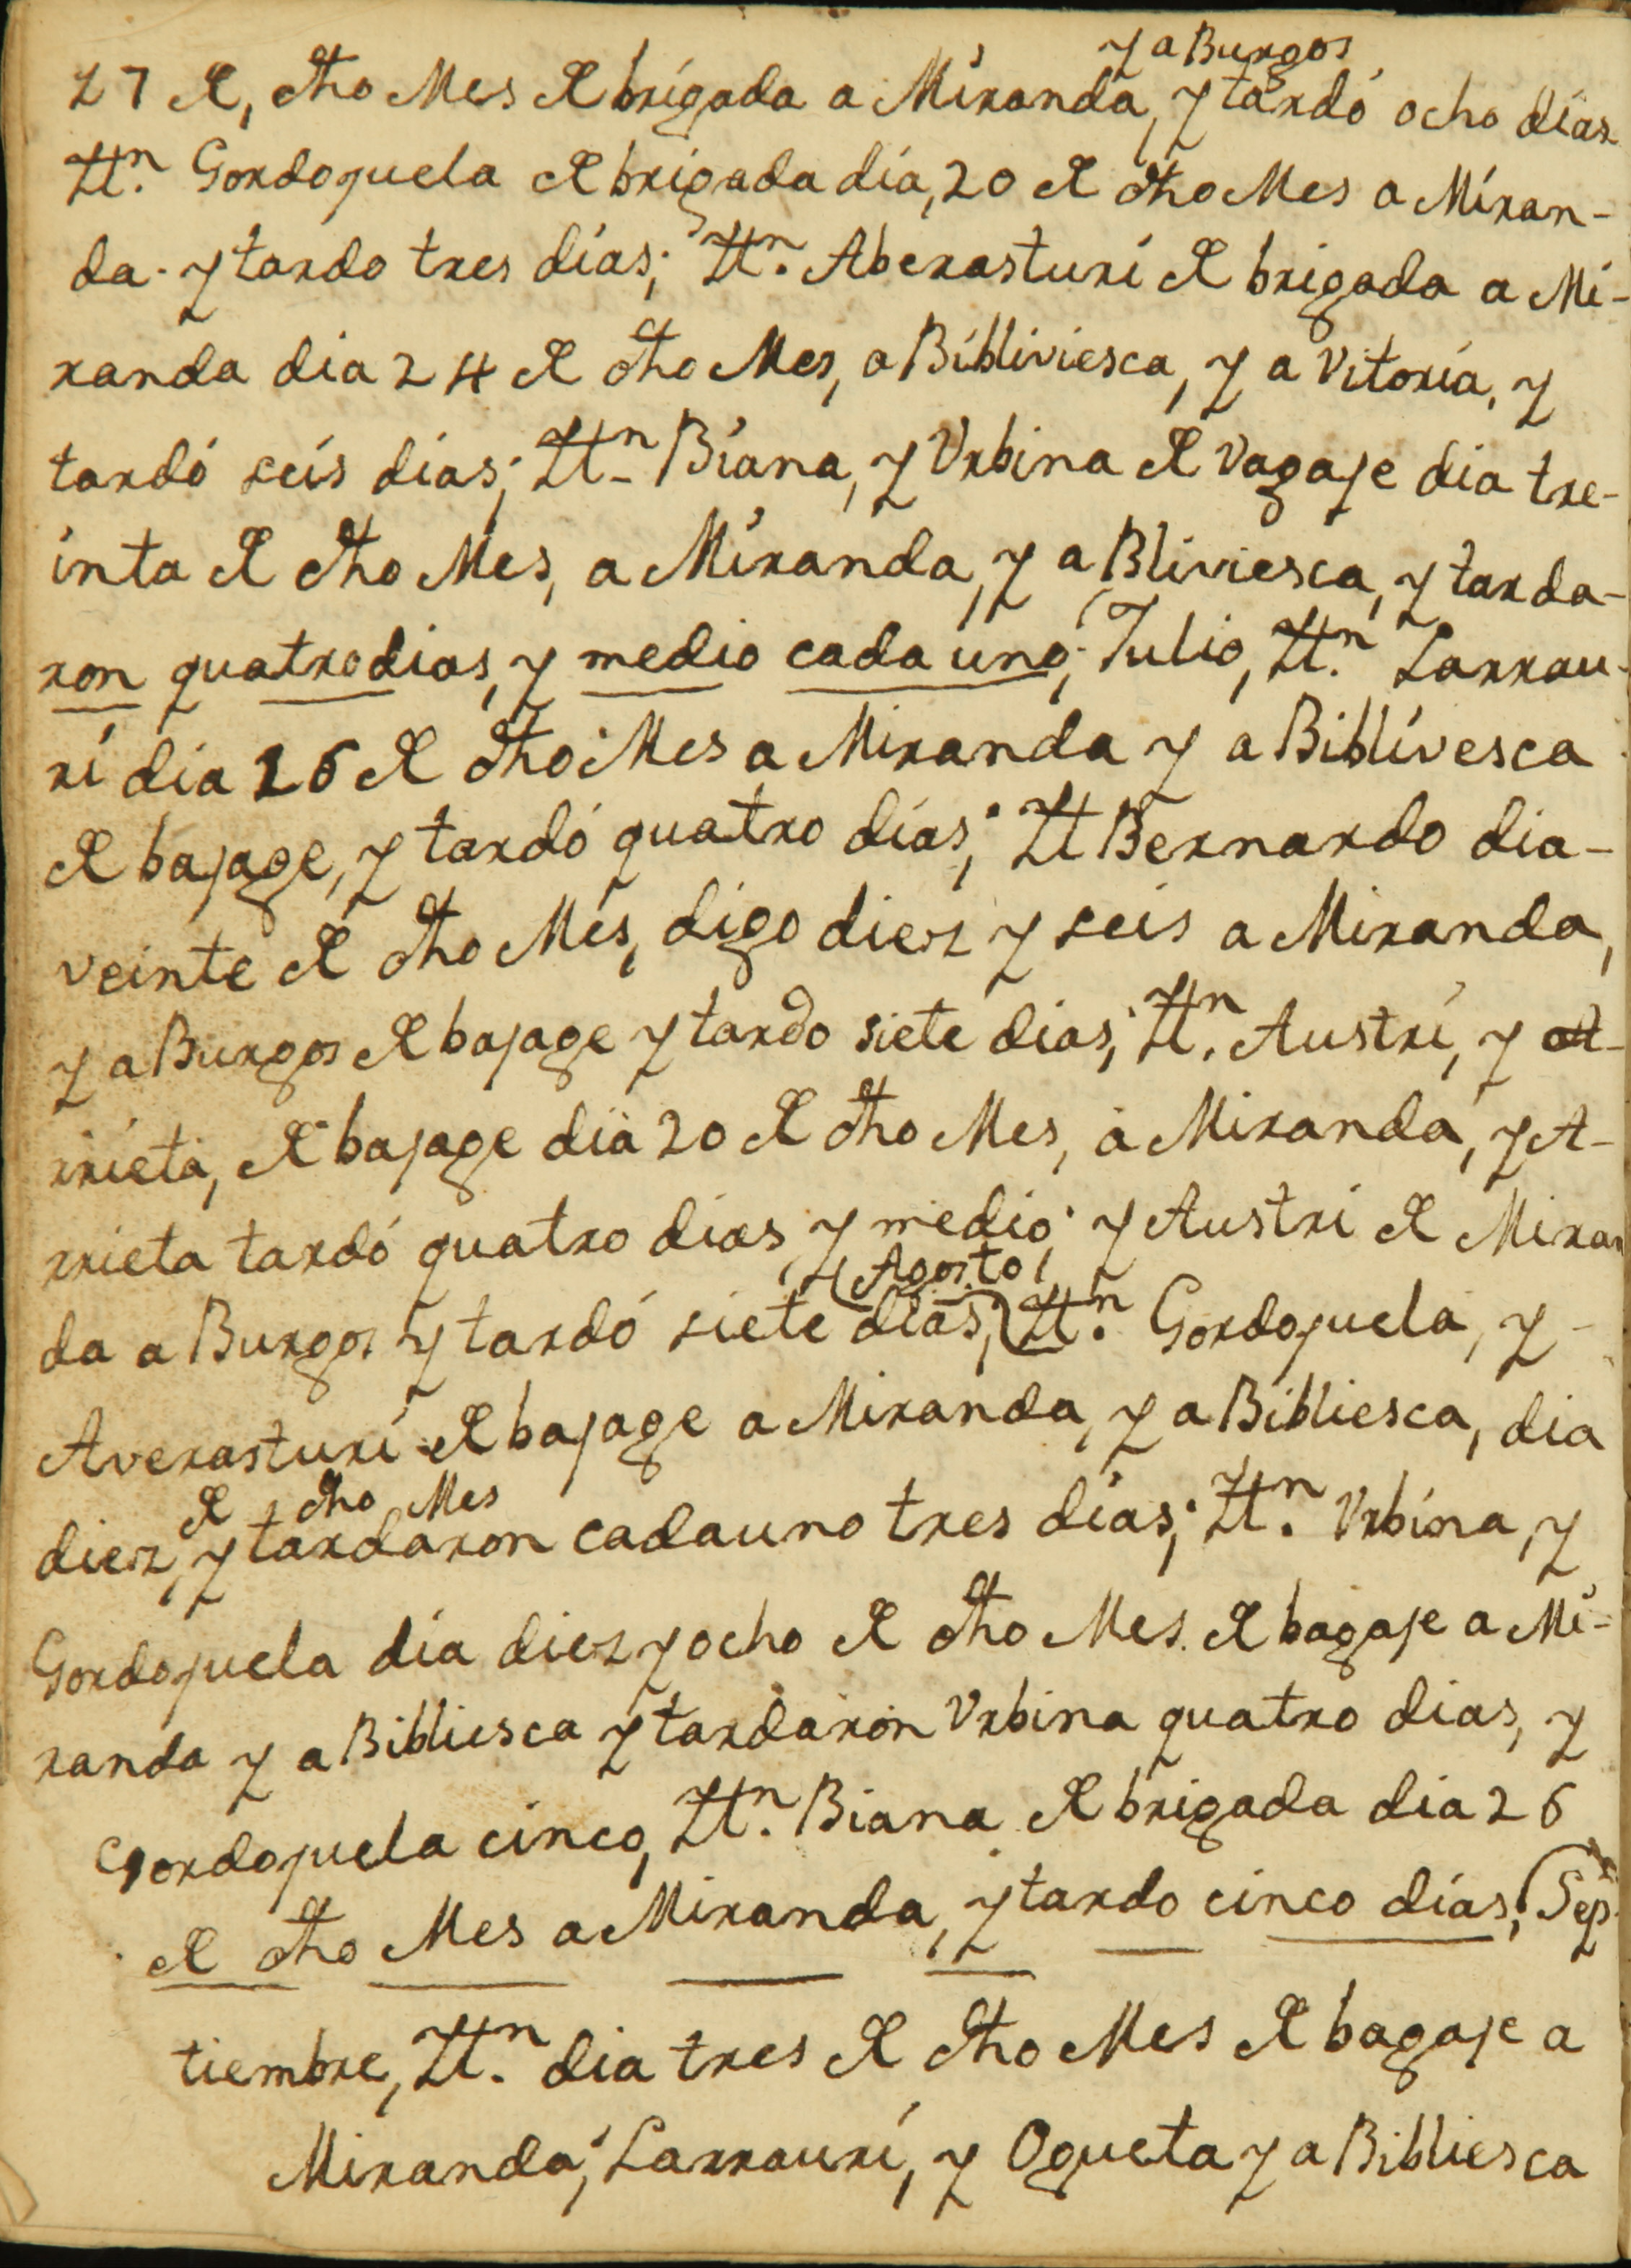 y a Burgos
27 de, dho Mes de brigada a Miranda, y tardó ocho días
Ittn. Gordojuela de brigada día, 20 de dho Mes a Miran-
da. y tardo tres días; Ittn. Aberasturi de brigada a Mi-
randa dia 24 de dho Mes, a Bibliviesca, y a Vitoria, y
tardó seis días; Ittn. Biana, y Vrbina de Vagaje dia tre-
inta de dho Mes, a Miranda, y a Bliviesca, y tarda-
ron quatro dias, y medio cada uno; (Julio, Ittn. Larrau-
ri dia 26 de dho Mes a Miranda y a Biblivesca
de bajage, y tardó quatro días; Itt Bernardo dia-
veinte de dho Mes, digo diez y seis a Miranda,
y a Burgos de bajage y tardo siete dias; Ittn. Austri, y A-
rrieta, de bajage dia 20 de dho Mes, a Miranda, y A-
rrieta tardó quatro dias, y medio; y Austri de Miran
(Agosto)
da a Burgos y tardó siete dias; Ittn. Gordojuela, y-
Averasturi de bajage a Miranda, y a Bibliesca, dia
de dho Mes
diez, y tardaron cada uno tres días; Ittn. Vrbina, y
Gordojuela día diez y ocho de dho Mes. de bagaje a Mi-
randa y a Bibliesca y tardaron Vrbina quatro dias, y
Gordojuela cinco, Ittn. Biana de brigada dia 26
de dho Mes a Miranda, y tardo cinco días; (Sep-
tiembre, Ittn. dia tres de dho Mes de bagaje a
Miranda; Larrauri, y Ogueta y a Bibliesca